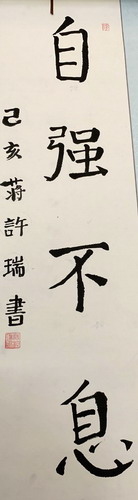 自强不息
己亥蒋許瑞書